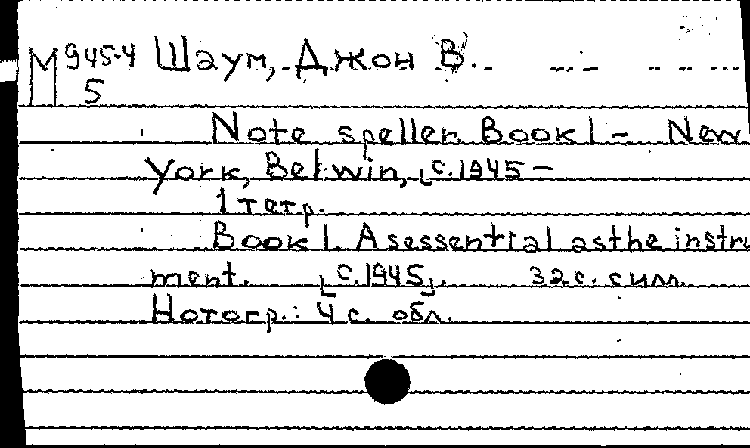 М 945-4 Шаум, Джон В.
5
Note speller. Book 1 - New
York, Belwin, [c.1945-
1 тетр.
Book 1. As essential as the instru
ment. [c.1945]. 32 с. с илл.
Нотогр.: 4 с. обл.